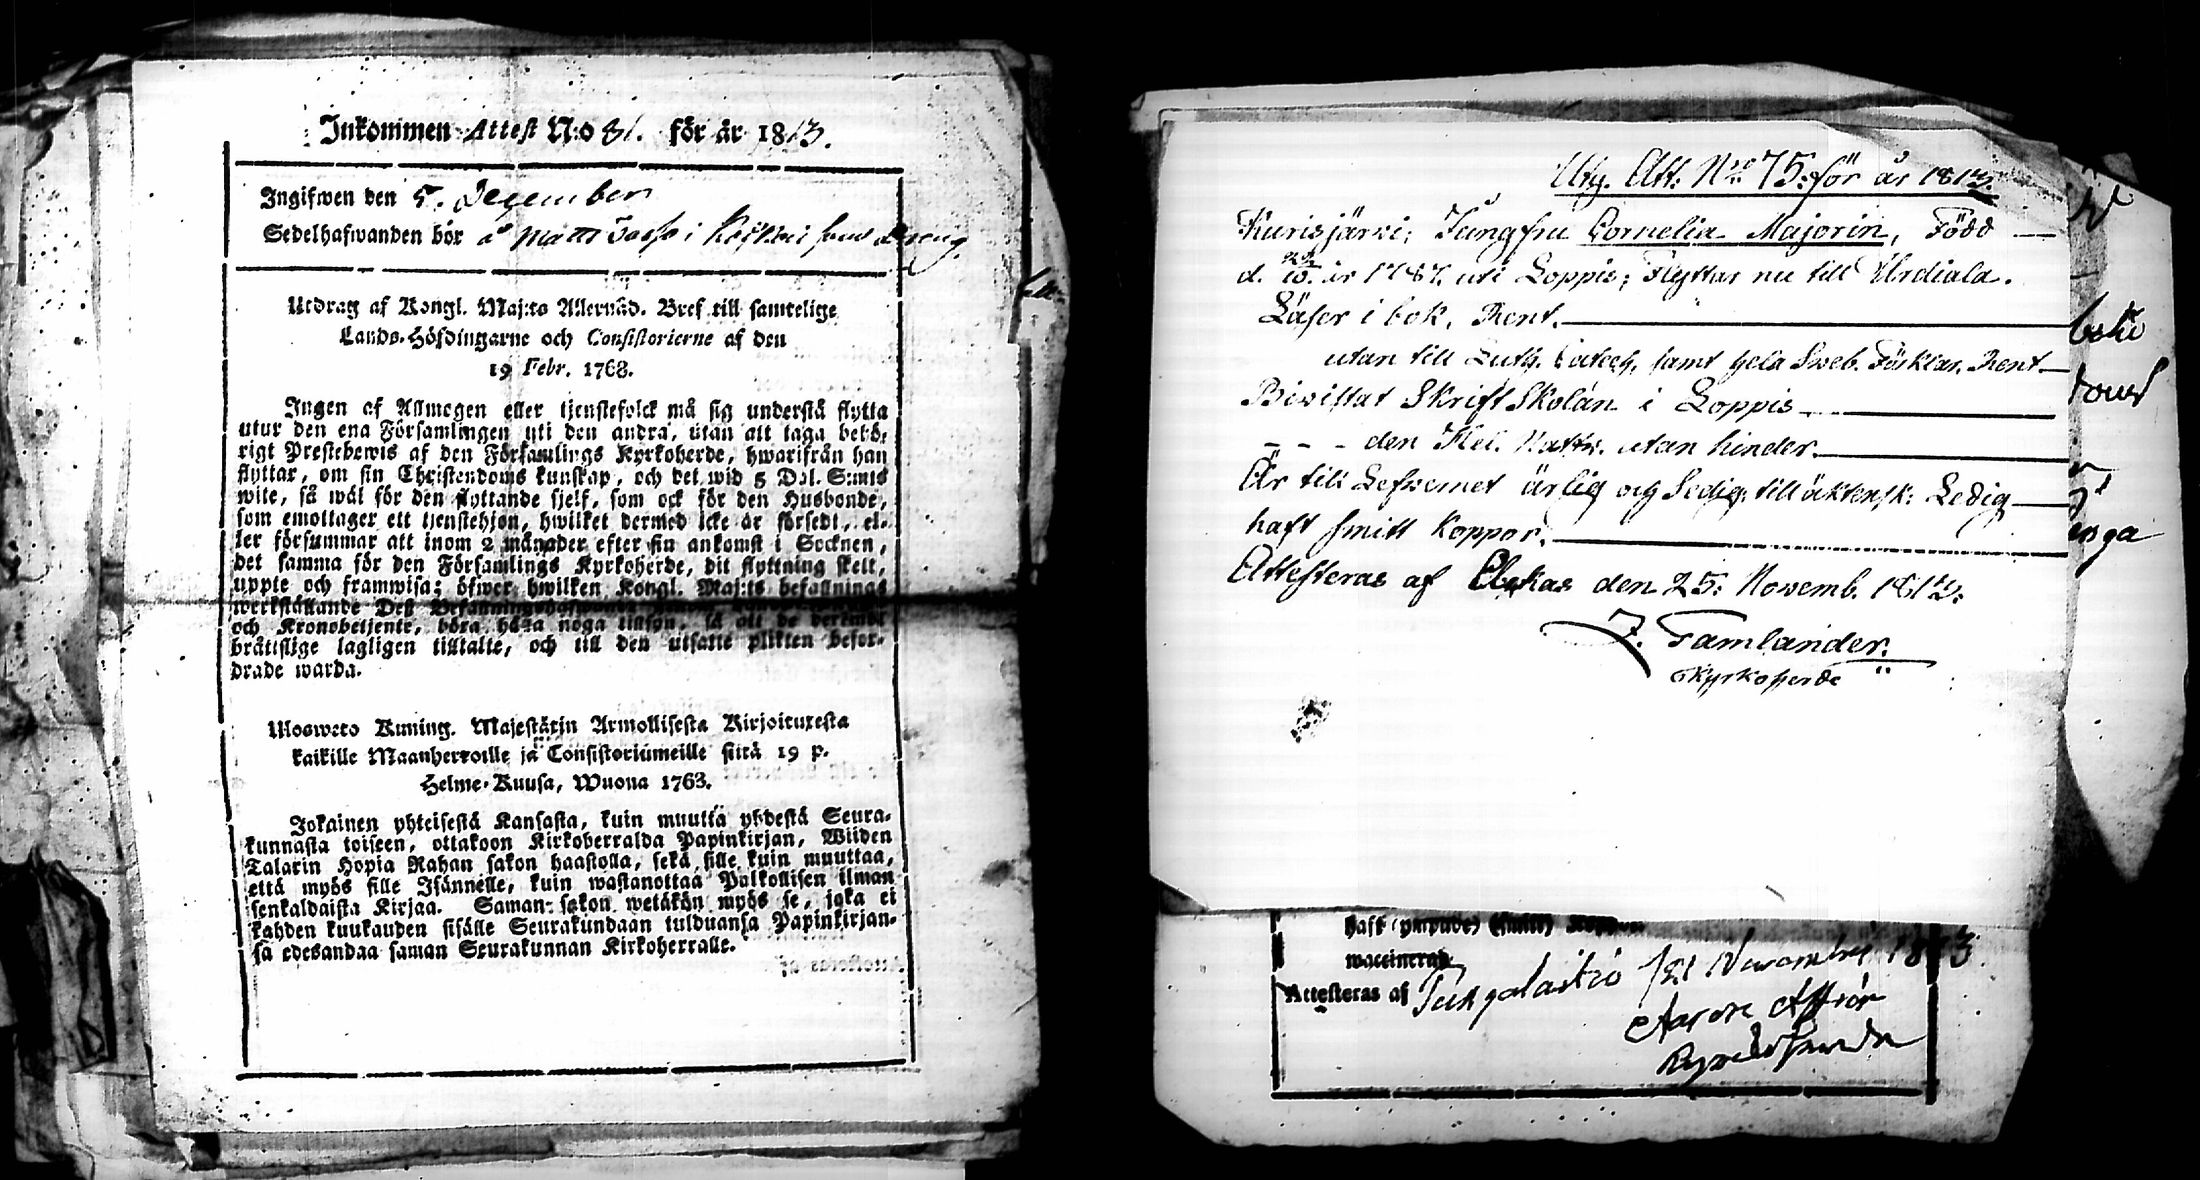 Inkommen Attest N:o 81. för år 1813.
Ingifwen den 5. December
Sedelhafwanden bör å Matti i som Dreng.
Utdrag af Kongl. Maj:ts Allernåd. Bref till samtelige
Lands-Höfdingarne och Consistorierne af den
19 Febr. 1768.
Ingen af Allmogen eller tjenstefolck må sig understå flytta
utur den ena Församlingen uti den andra, utan att taga behö-
rigt Prestebewis af den Församlings Kyrkoherde, hwarifrån han
flyttar, om sin Christendoms kunskap, och det wid 5 Dal. S:mts
wite, så wäl för den flyttande sjelf, som ock för den Husbonde,
som emottager ett tjenstehjon, hwilket dermed icke är försedt, el-
ler försummar att inom 2 månader efter sin ankomst i Socknen,
det samma för den Församlings Kyrkoherde, dit flyttning skett,
uppte och framwisa; öfwer hwilken Kongl. Maj:ts befallnings
werkställande Deß Befallningshafwande
och Kronobetjente, böra hafa noga tillsyn, så att de
bråttslige lagligen tilltalte, och till den utsatte plikten befor-
drade warda.
Ulosweto Kuning. Majestätin Armollisesta Kirjoituxesta
kaikille Maanherroille ja Consistoriumeille siitä 19 p.
Helme-Kuusa, Wuona 1763.
Jokainen yhteisestä Kansasta, kuin muutta yhdestä Seura-
kunnasta toiseen, ottakoon Kirkoherralda Papinkirjan, Wiiden
Talarin Hopia Rahan sakon haastolla, sekä sille kuin muuttaa,
että myös sille Isännelle, kuin wastanottaa Palkollisen ilman
senkaldaista Kirjaa. Saman sakon wetäkön myös se, joka ei
kahden kuukauden sisälle Seurakundaan tulduansa Papinkirjan-
sa edesandaa saman Seurakunnan Kirkoherralle.
Utg. Att: N:ro 75: för år 1813.
Kurisjärvi; Jungfru Cornelia Majorin, Född
d. 10. år 1787. uti Loppis; Flyttar nu till Urdiala.
Läser i bok, Rent.
utan till Luth. Catech, samt hela Sweb. Förklar. Rent
Biwistat Skrift Skolan i Loppis
- - - den Hel. Nattv. utan hinder.
Är till Lefwernet ärlig och Sedig; till äktensk: Ledig
haft smitt koppor.
Attesteras af Akas den 25: Novemb. 1813:
J. Tamlander.
Kyrkoherde
haft (ympade) (smitt) Koppor
waccinerad
Attesteras af 1813